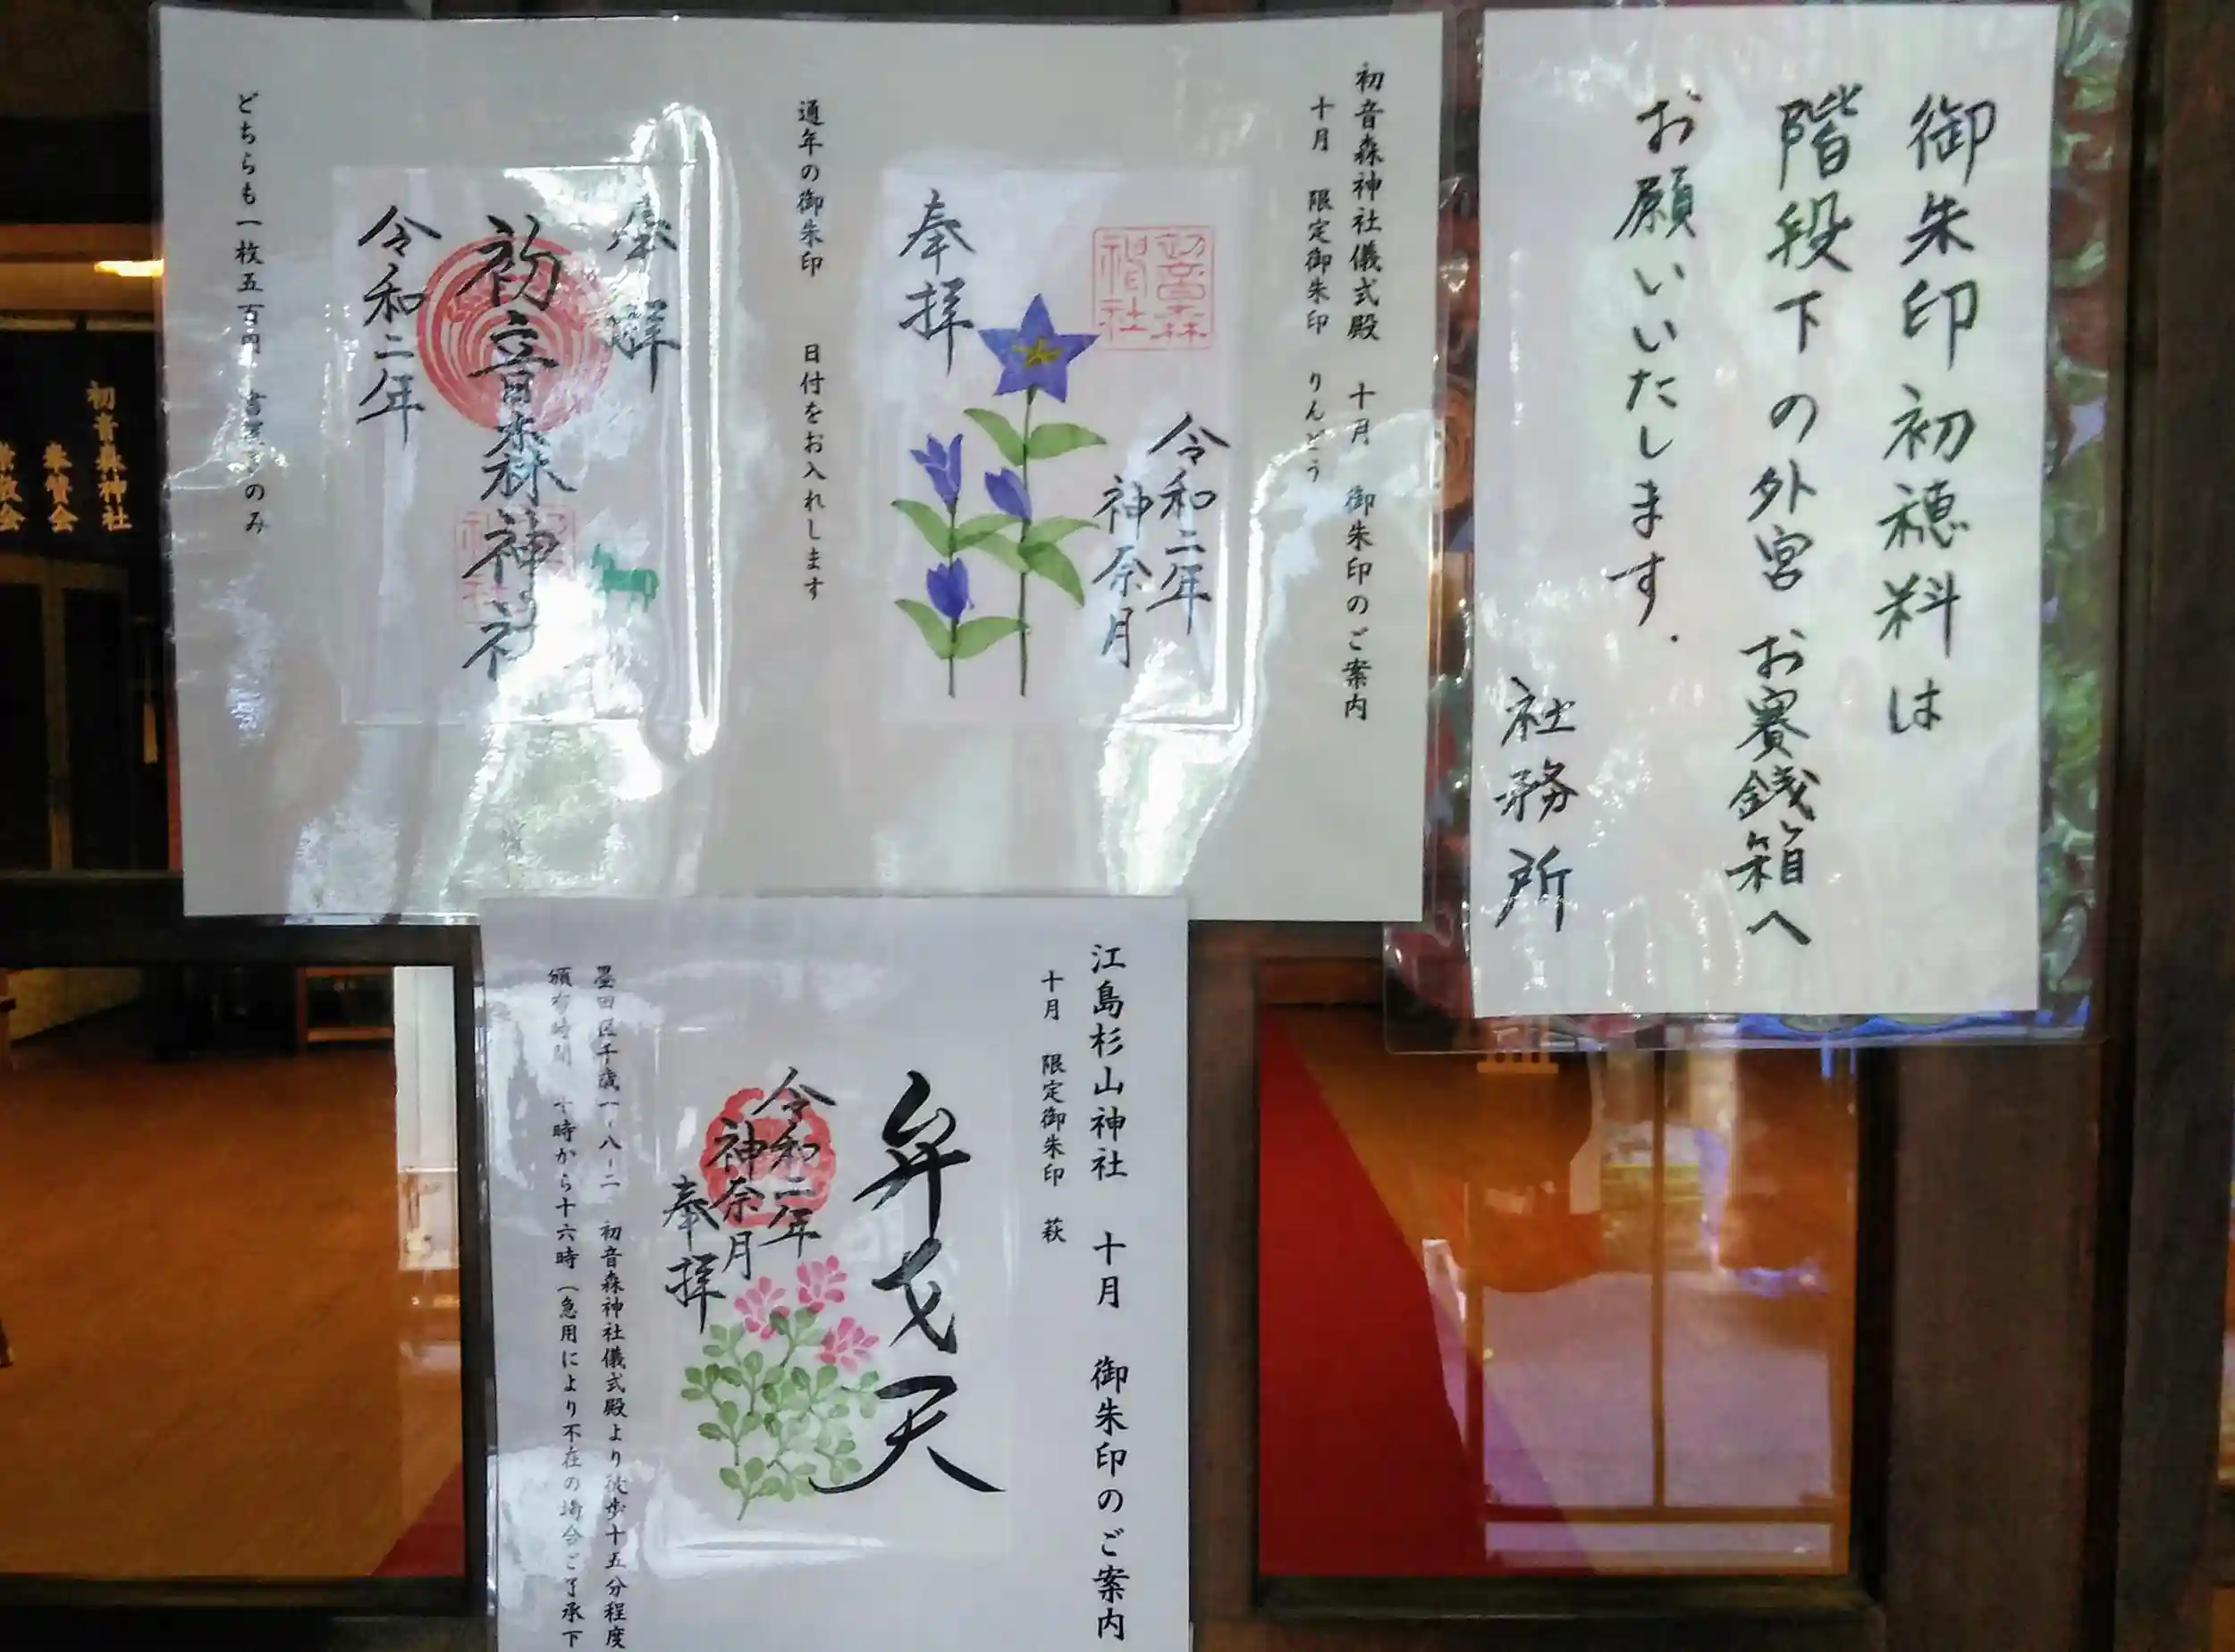 御朱印初穂料は
階段下の外宮 お賽銭箱へ
お願いいたします.
社務所
初音森神社儀式殿 十月 御朱印のご案内
十月 限定御朱印 りんどう
初音森
神社
奉拝
令和二年
神奈月
通年の御朱印 日付をお入れします
奉拝
初音森神社
令和二年
どちらも一枚五百円 のみ
初音森神社
奉賛会
江島杉山神社 十月 御朱印のご案内
十月 限定御朱印 萩
弁才天
令和二年
神奈月
奉拝
墨田区千歳一-八-二 初音森神社儀式殿より徒歩十五分程度
頒布時間 十時から十六時(急用により不在の場合ご了承下